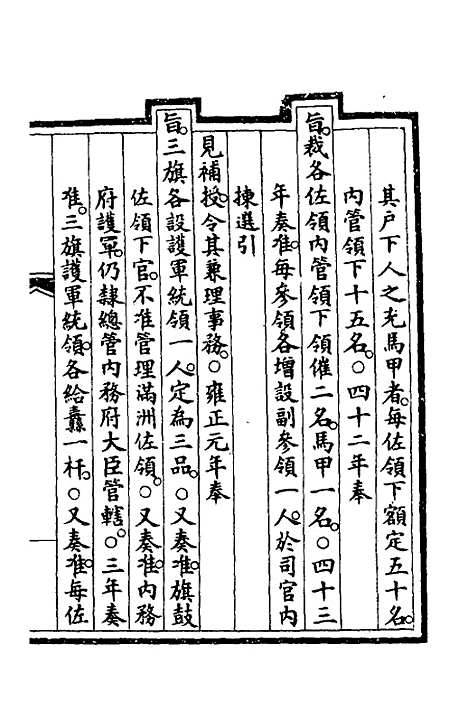 其戶下人之充馬甲者。每佐領下額定五十名。
內管領下十五名。○四十二年奉
旨。裁各佐領內管領下領催二名。馬甲一名。○四十三
年奏准。每參領各增設副參領一人。於司官內
揀選引
見補授。令其兼理事務。○雍正元年奉
旨。三旗各設護軍統領一人。定為三品。○又奏准。旗鼓
佐領下官。不准管理滿洲佐領。○又奏准。內務
府護軍。仍隸總管內務府大臣管轄。○三年奏
准。三旗護軍統領。各給纛一杆。○又奏准。每佐